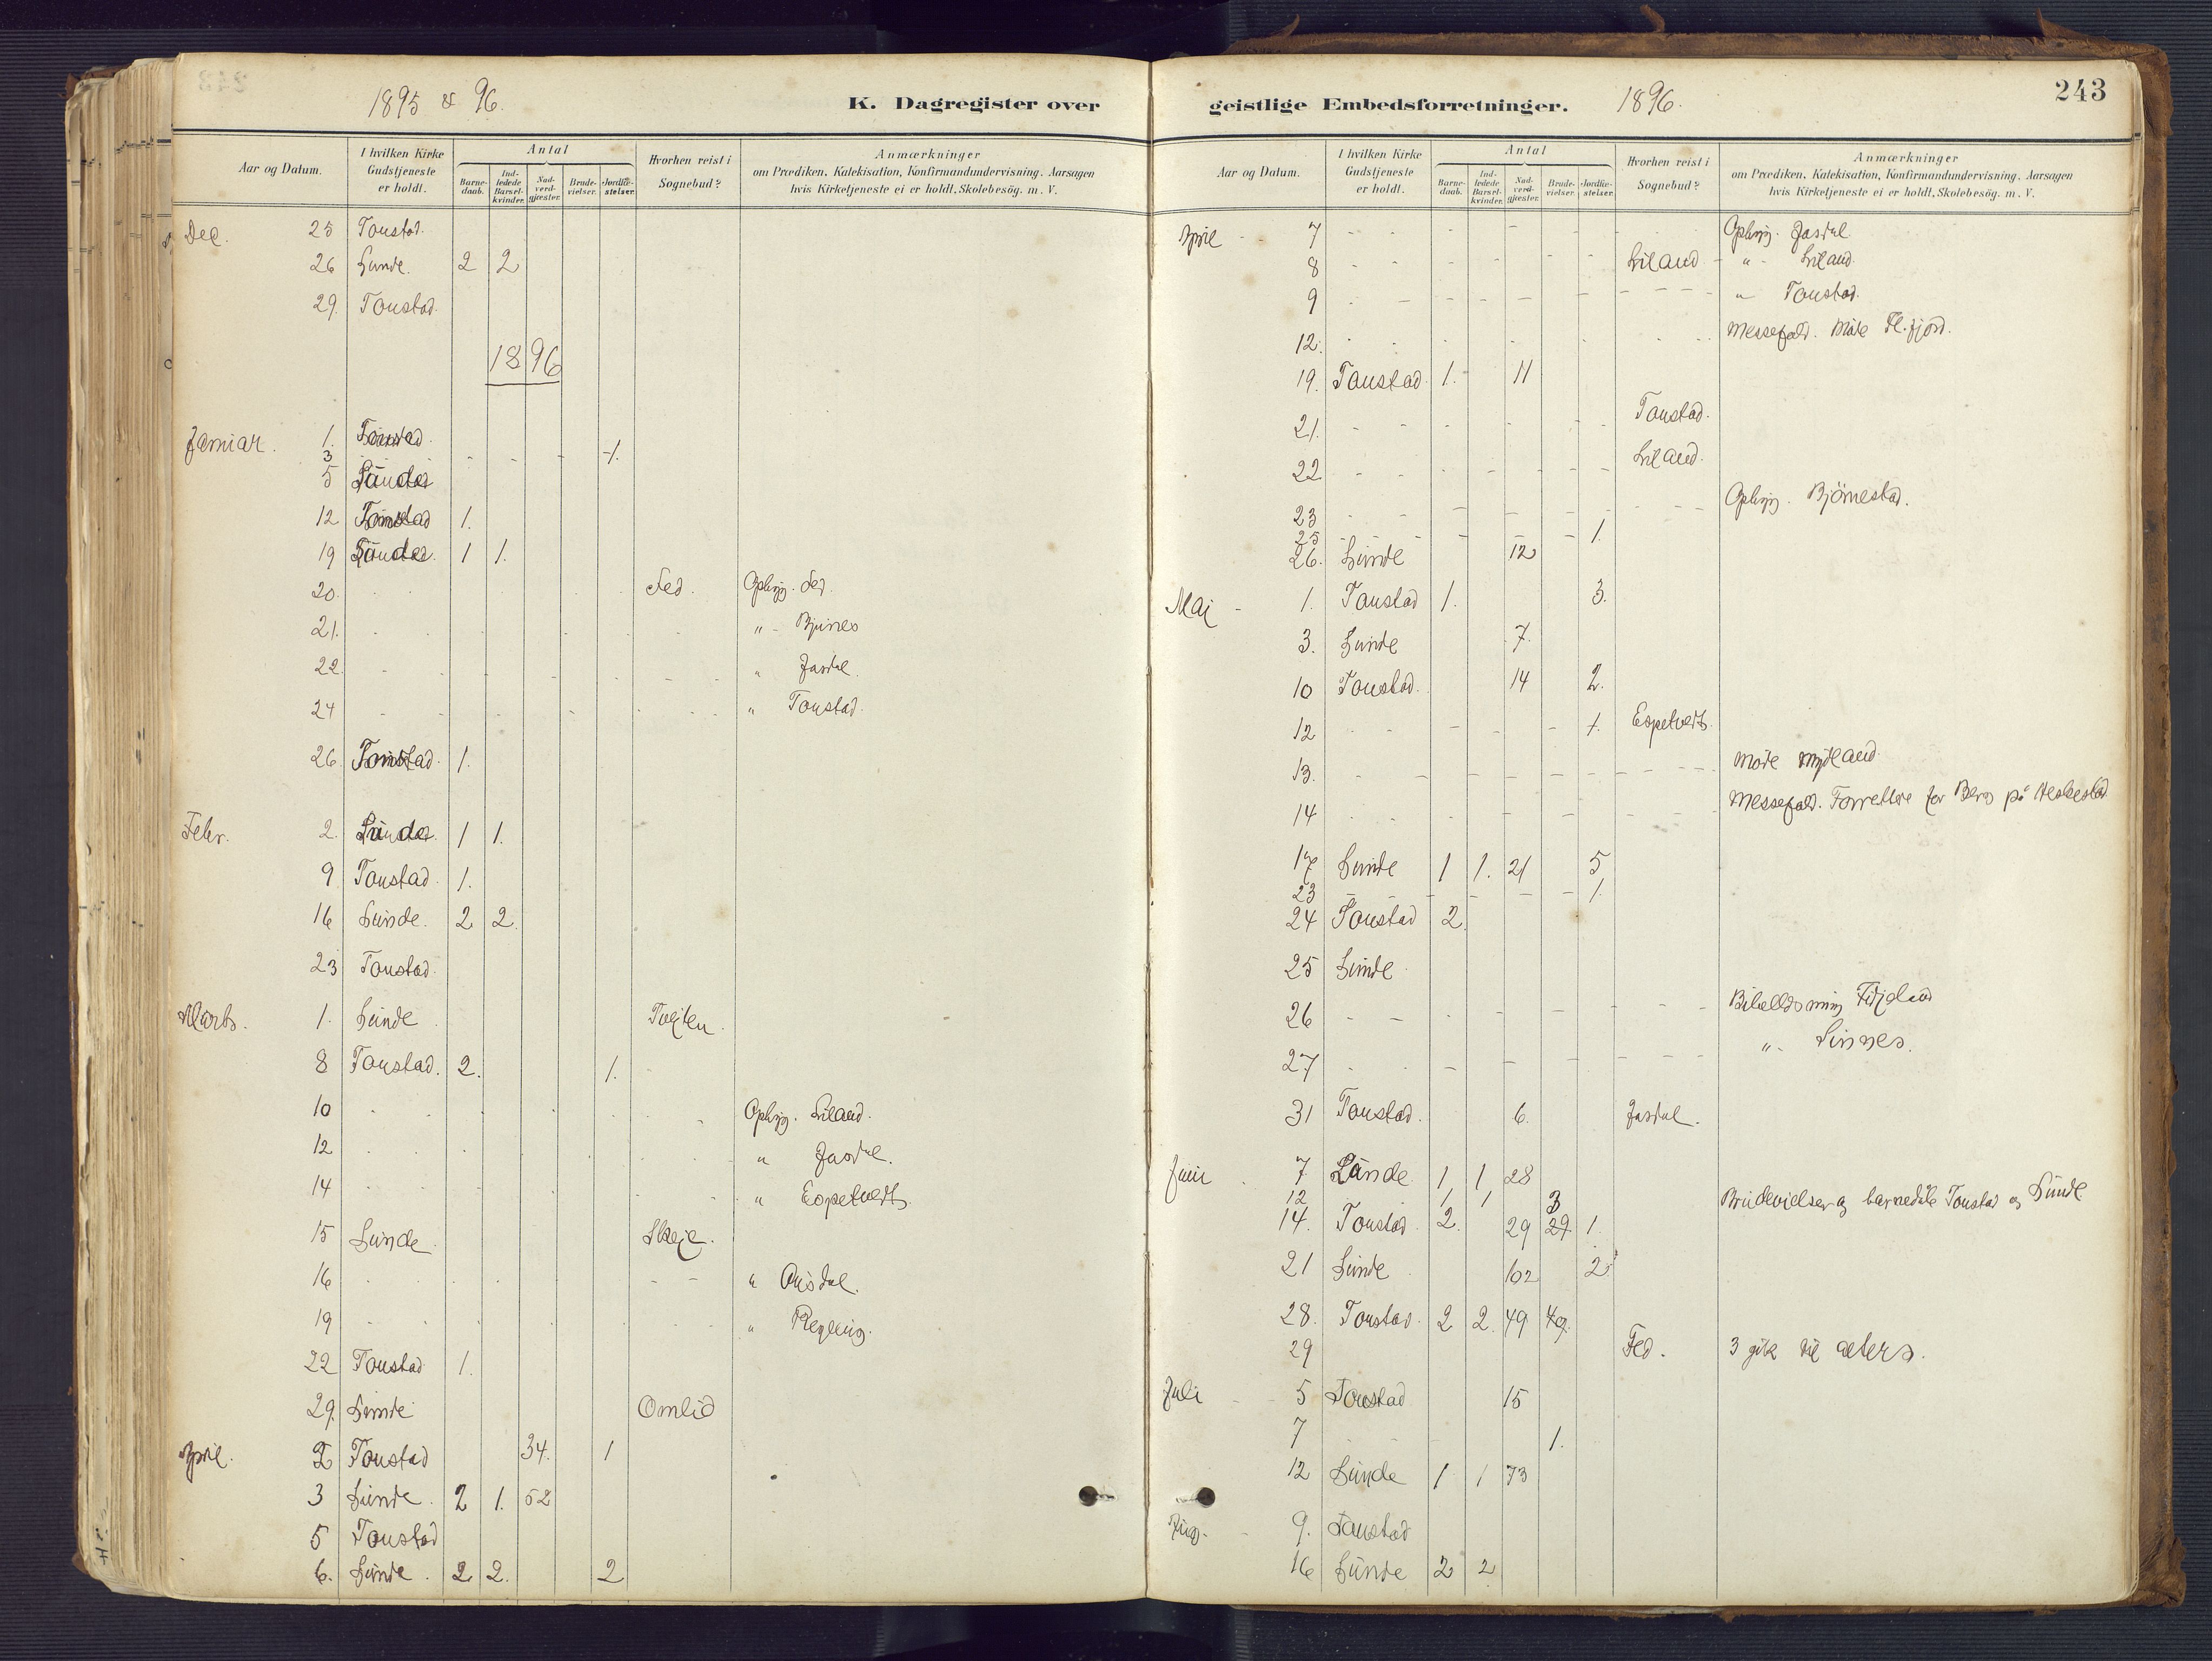 1895 & 96.
K. Dagregister over
Aar og Datum.
I hvilken Kirke Gudstjeneste er holdt.
Antal
Barnedaab.
Indledede Barselkvinder.
Nadverdgjæster.
Brudevielser.
Jordfæstelser.
Hvorhen reist i Sognebud?
Anmærkninger
om Prædiken, Katekisation, Konfirmandundervisning, Aarsagen
hvis Kirketjeneste ei er holdt, Skolebesög. m. V.
Dec. 25 Tonstad.
26 Lunde. 2 2
29. Tonstad.
1896
Januar. 1. Tonstad.
3 - - - - 1.
5 Lunde
12 Tonstad 1.
19 Lunde 1 1.
20. Fed. Oplysg. Fed.
21. " - Bjunes
22. " Josdal.
24 " Tonstad.
26. Tonstad. 1.
Febr. 2. Lunde. 1 1.
9 Tonstad. 1.
16 Lunde. 2 2.
23 Tonstad.
Marts. 1. Lunde
8 Tonstad. 2. 1.
10 Oplysg. Liland.
12 " Josdal.
14 " Espetvedt.
15 Lunde. Skeie.
16 " Ousdal.
19 "
22 Tonstad 1.
29. Lunde Omlid
April. 2 Tonstad 34. 1
3 Lunde. 2 1. 52
5 Tonstad
6. Lunde. 2 2. 2
geistlige Embedsforretninger. 1896.
243
Aar og Datum.
I hvilken Kirke Gudstjeneste er holdt.
Antal
Barnedaab.
Indledede Barselkvinder.
Nadverdgjæster.
Brudevielser.
Jordfæstelser.
Hvorhen reist i Sognebud?
Anmærkninger
om Prædiken, Katekisation, Konfirmandundervisning, Aarsagen
hvis Kirketjeneste ei er holdt, Skolebesög. m. V.
April - 7 Oplysg. Josdal
8 Liland - " - Liland.
9 " Tonstad.
12. Messefald. Möte Fl.fjord.
19. Tonstad 1. 11
21. Tonstad.
22 Liland.
23 Oplysg. Björnestad.
25 - - - - 1.
26. Lunde 12
Mai - 1. Tonstad 1. 3.
3. Lunde 7.
10 Tonstad. 14 2.
12 1. Espetvedt.
13. Möte Mydland.
14 Messefald. Forrettere for Berg på Heskestad
17 Lunde 1 1. 21 5
23 - - - - 1.
24 Tonstad 2.
25 Lunde
26 Fidjeland
27 " - Sinnes.
31 Tonstad. 6. Josdal.
Juni 7 Lunde 1 1 28
12 1 1 3 Brudevielser og barnedåb Tonstad og Lunde
14. Tonstad. 2. 29 29. 1.
21 Lunde 102 2
28. Tonstad. 2 2. 49 49.
29 Fed. 3 gik til alters.
Juli 5 Tonstad 15
7 1.
12 Lunde 1 1 73
Aug. - 9. Tonstad
16 Lunde 2 2